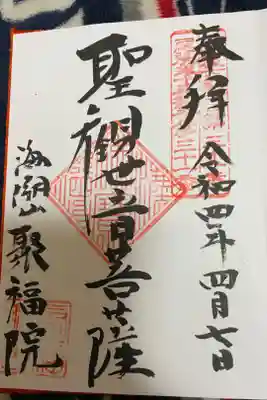 奉拝
令和四年四月七日
聖観世音菩薩
海潮山聚福院